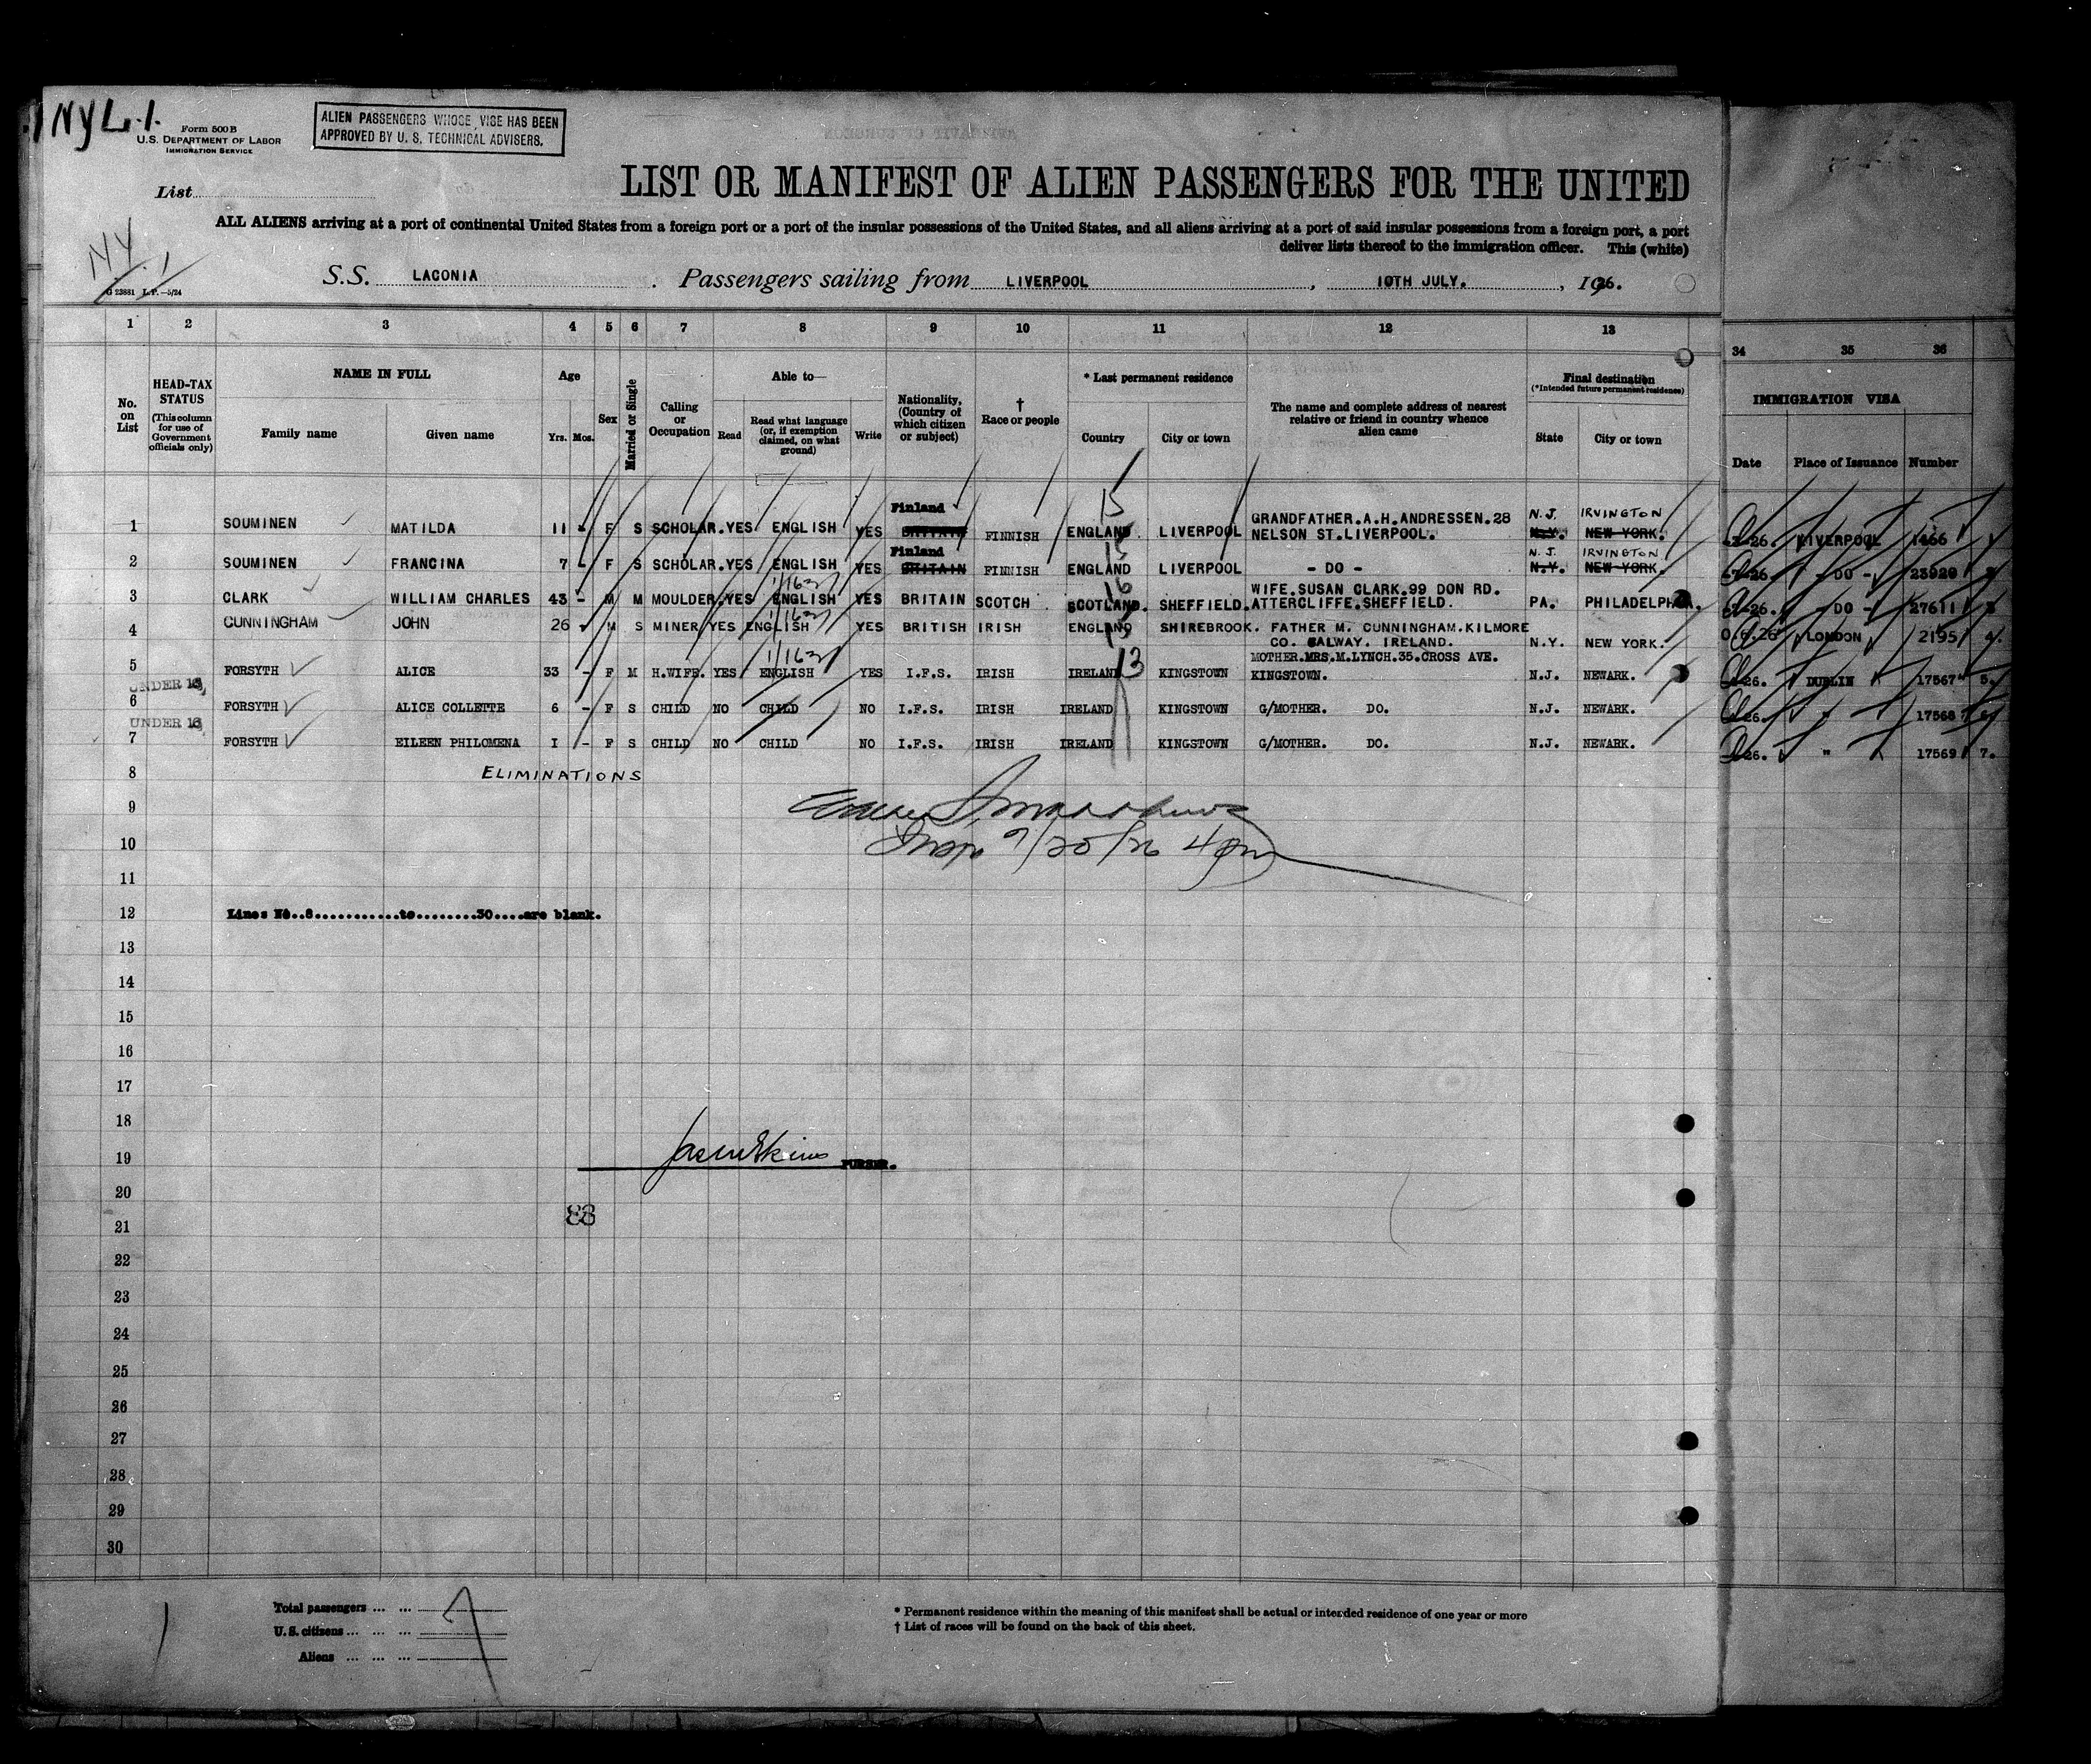 NYL.1.
Form 500 B
U.S. DEPARTMENT OF LABOR
IMMIGRATION SERVICE
ALIEN PASSENGERS WHOSE VISE HAS BEEN
APPROVED BY U. S. TECHNICAL ADVISERS.
List
LIST OR MANIFEST OF ALIEN PASSENGERS FOR THE UNITED
ALL ALIENS arriving at a port of continental United States from a foreign port or a port of the insular possessions of the United States, and all aliens arriving at a port of said insular possessions from a foreign port, a port
deliver lists thereof to the immigration officer. This (white)
NY 1
G 23881 L.P.—5/24
S.S. LACONIA. Passengers sailing from LIVERPOOL, 10TH JULY., 1926.
1 2 3 4 5 6 7 8 9 10 11 12 13 34 35 36
No. on List
HEAD-TAX STATUS
(This column for use of Government officials only)
NAME IN FULL
Family name Given name
Age
Yrs. Mos.
Sex
Married or Single
Calling or Occupation
Able to—
Read
Read what language (or, if exemption claimed, on what ground)
Write
Nationality, (Country of which citizen or subject)
† Race or people
* Last permanent residence
Country City or town
The name and complete address of nearest relative or friend in country whence alien came
Final destination
(*Intended future permanent residence)
State City or town
IMMIGRATION VISA
Date Place of Issuance Number
Finland 15 N.J. IRVINGTON
1 SOUMINEN MATILDA 11 - F S SCHOLAR. YES ENGLISH YES FINNISH ENGLAND. LIVERPOOL GRANDFATHER.A.H.ANDRESSEN.28 NELSON ST.LIVERPOOL. N.Y. NEW YORK. 26. LIVERPOOL 1466
Finland 15 N.J. IRVINGTON
2 SOUMINEN FRANCINA 7 - F S SCHOLAR. YES ENGLISH YES BRITAIN FINNISH ENGLAND LIVERPOOL - DO - N.Y. NEW YORK. 26. - DO - 23920
1/163 16
3 CLARK WILLIAM CHARLES 43 - M M MOULDER. YES ENGLISH YES BRITAIN SCOTCH SCOTLAND. SHEFFIELD. WIFE.SUSAN CLARK.99 DON RD. ATTERCLIFFE.SHEFFIELD. PA. PHILADELPHIA. 26. - DO - 27611 3
1/163
4 CUNNINGHAM JOHN 26 M S MINER YES ENGLISH YES BRITISH IRISH ENGLAND SHIREBROOK. FATHER M. CUNNINGHAM.KILMORE CO. GALWAY. IRELAND. N.Y. NEW YORK. 26 LONDON 2195 4.
1/163 13
5 FORSYTH ALICE 33 - F M H.WIFE. YES ENGLISH YES I.F.S. IRISH IRELAND KINGSTOWN MOTHER.MRS.M.LYNCH.35.CROSS AVE. KINGSTOWN. N.J. NEWARK. 26. DUBLIN 17567 5.
UNDER 16
6 FORSYTH ALICE COLLETTE 6 - F S CHILD NO CHILD NO I.F.S. IRISH IRELAND KINGSTOWN G/MOTHER. DO. N.J. NEWARK. 26. " 17568 6.
UNDER 16
7 FORSYTH EILEEN PHILOMENA I - F S CHILD NO CHILD NO I.F.S. IRISH IRELAND KINGSTOWN G/MOTHER. DO. N.J. NEWARK. 26. " 17569 7.
8 ELIMINATIONS
9
10 Insp 7/20/26 4 pm
11
12 Lines No..8...........to........30....are blank.
13
14
15
16
17
18
19 PURSER.
20
21
22
23
24
25
26
27
28
29
30
Total passengers ... ... 7
U.S. citizens ... ... ...
Aliens ... ... ...
* Permanent residence within the meaning of this manifest shall be actual or intended residence of one year or more
† List of races will be found on the back of this sheet.